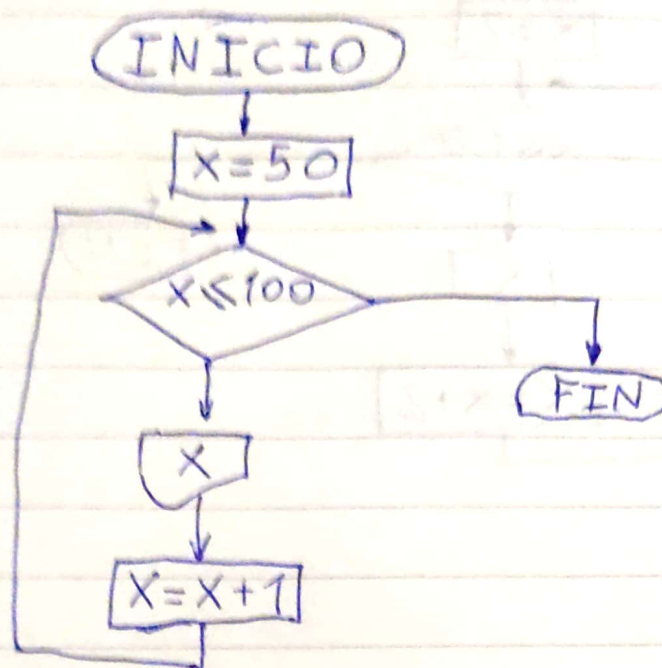 INICIO
X=50
X≤100
FIN
X
X=X+1